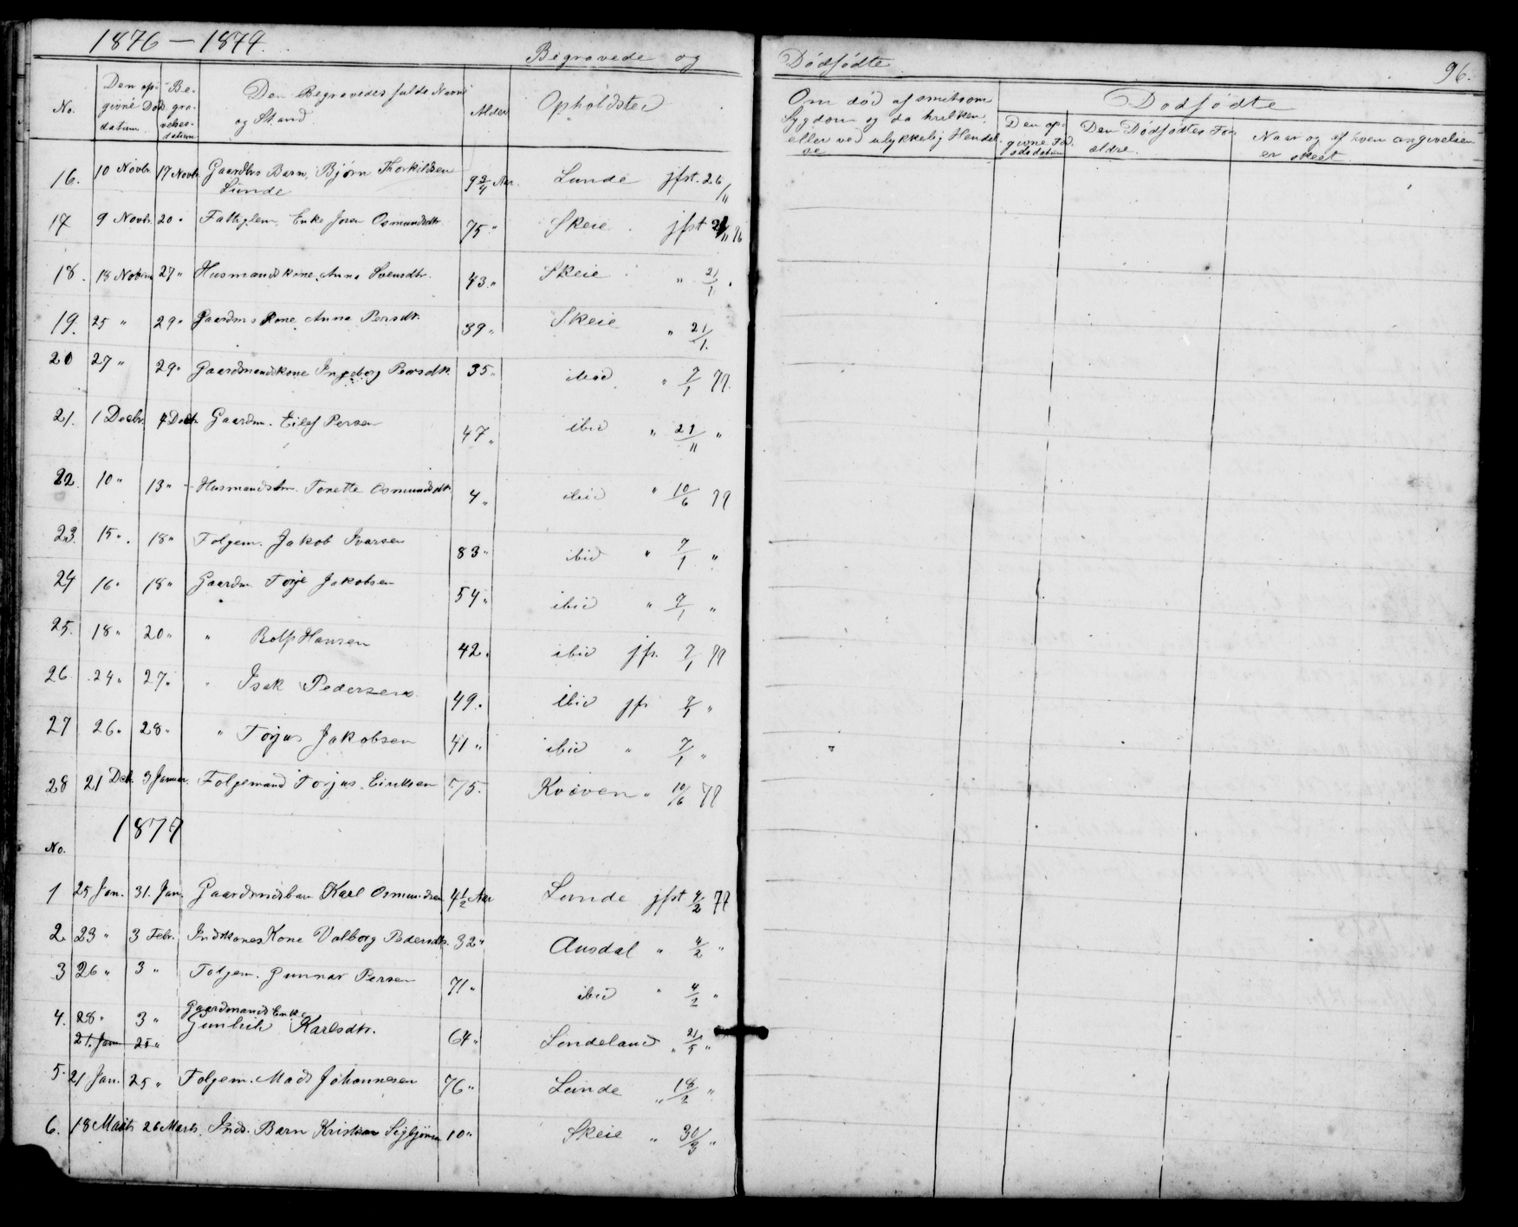 1876 - 1879.
Begravede og Dødfødte 96.
No. Den opgivne Døds datum. Begravelsesdatum Den Begravedes fulde Navn og Stand Alder Opholdsted
Om død af smitsom Sygdom og da hvilken, eller ved ulykkelig Hendelse
Dødfødte
Den opgivne Fødselsdatum Den Dødfødtes Forældre. Naar og af hvem angivelsen er skeet
16. 10 Novbr 17 Novbr Gaardbrs Barn, Bjørn Thorkildsen Lunde 9 3/4 Aar Lunde jfst. 26/11
17 9 Novbr 20 " Enke Osmundsdtr 75 " Skeie jfst 21/11 76
18. 18 Novbr 27 " Husmandskone Anna Svensdtr. 43 " Skeie " 21/1 "
19. 25 " 29 " Gaardms Kone Anna Persdt. 39 " Skeie " 21/1.
20 27 " 29 " Gaardmandskone Ingeborg Persdt. 35 " ibid " 7/1 77.
21. 1 Decbr. 4 Decbr Gaardm. Eilef Persen 47 " ibid " 21/11 "
22. 10 " 13 " Torette Osmundsdt 4 " ibid " 10/6 77
23. 15 " 18 " Folgem. Jakob Ivarsen 83 " ibid " 7/1 "
24 16 " 18 " Gaardm Torje Jakobsen 54 " ibid " 7/1 "
25. 18 " 20 " " Rolf Hansen 42 " ibid jfr. 7/1 77
26 24 " 27 " " Isak Pedersen 49 " ibid jfr 7/1 "
27 26 " 28 " " Torjus Jakobsen 41 " ibid " 7/1 "
28 21 Dec. 3 Januar. Folgemand Torjus Eriksen 75. Kvæven " 10/6 77
1877
No.
1 25 Jan. 31. Jan. Gaardmdsbarn Karl Osmundsen 4 1/2 Aar Lunde jfst 4/2 77
2. 23 " 3 Febr. Kone Valborg Pedersdtr. 32 " Ausdal " 4/2 "
3 26 " 3 " Folgem. Gunnar Persen 71 " ibid " 4/2 "
4. 28 " 3 " Gaardmands Enke Gunhild Karlsdtr. 64 " Lindeland " 21/5 "
21. Jan 25 "
5. 21 Jan. 25 " Folgem. Mads Johannesen 76 " Lunde " 18/2 "
6. 18 Marts 26 Marts. Inds. Barn Kristian Sigbjørnsen 10 " Skeie " 30/3 "